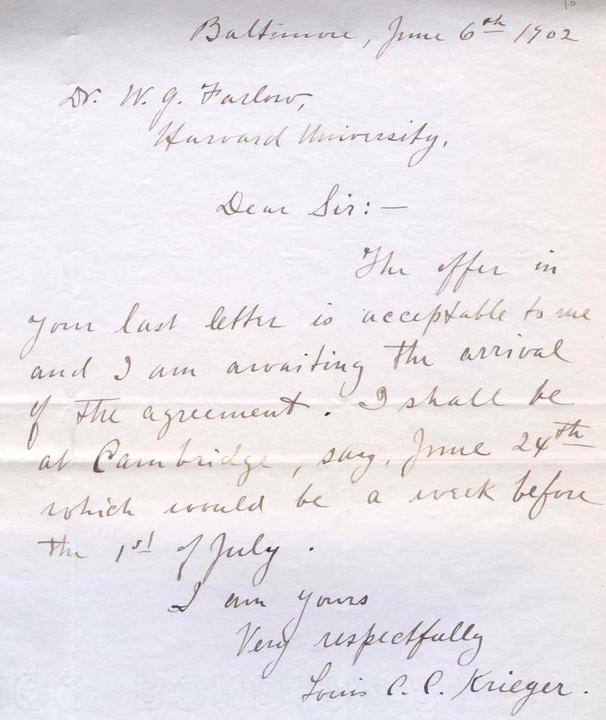 Baltimore, June 6th 1902
Dr. W. G. Farlow,
Harvard University.
Dear Sir:—
The offer in
your last letter is acceptable to me
and I am awaiting the arrival
of the agreement. I shall be
at Cambridge, say, June 24th
which would be a week before
the 1st of July.
I am yours
Very respectfully
Louis C. C. Krieger.